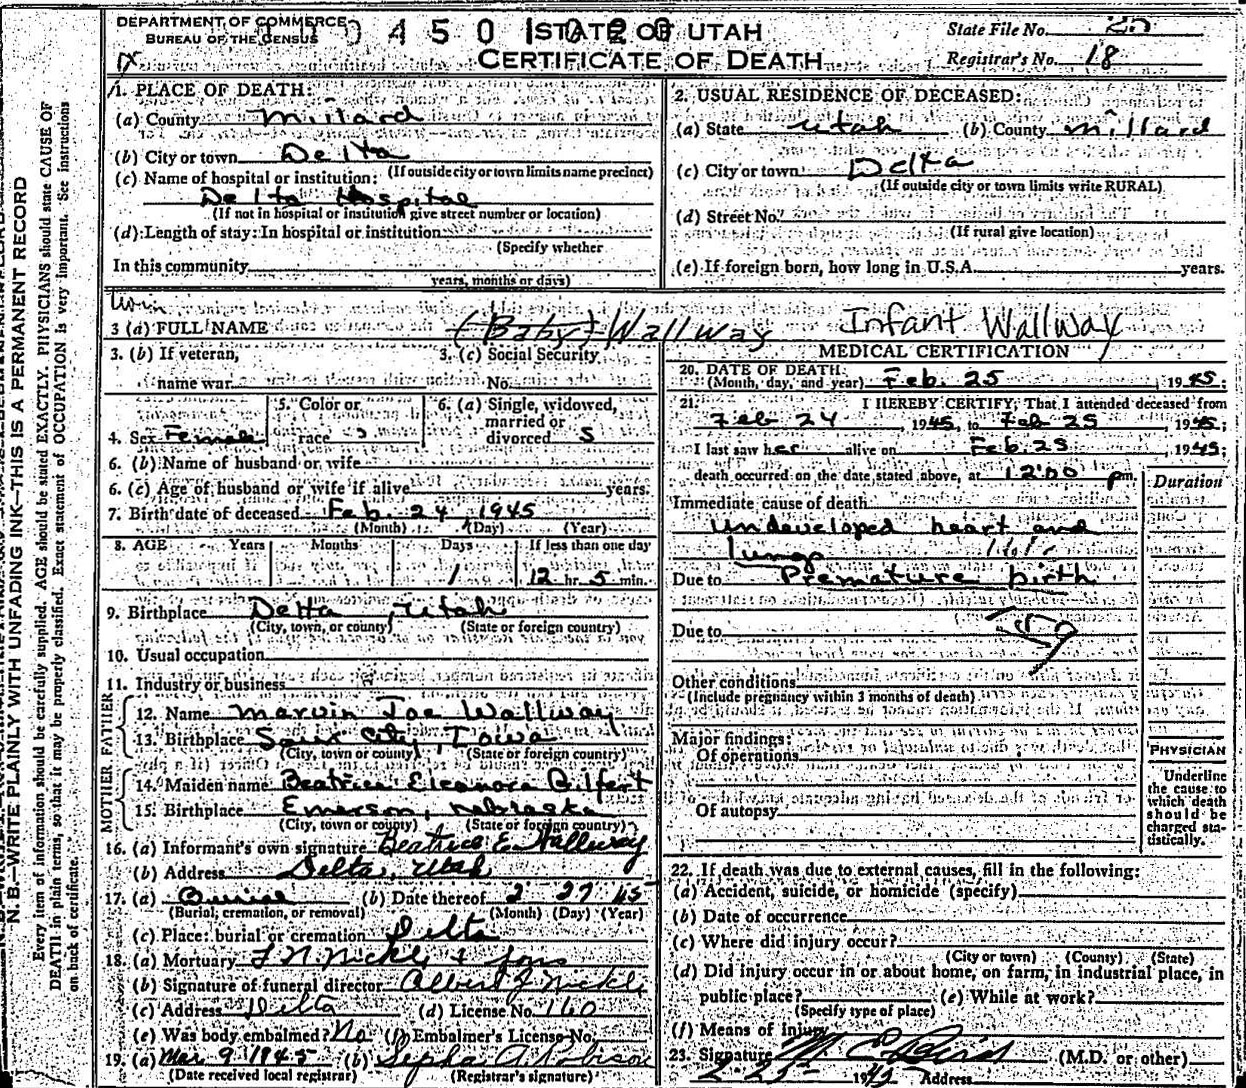 DEPARTMENT OF COMMERCE
BUREAU OF THE CENSUS
STATE OF UTAH
CERTIFICATE OF DEATH
State File No. 20
Registrar's No. 18
1. PLACE OF DEATH:
(a) County Millard
(b) City or town Delta
(If outside city or town limits name precinct)
(c) Name of hospital or institution:
Delta Hospital
(If not in hospital or institution give street number or location)
(d) Length of stay: In hospital or institution
(Specify whether
In this community
years, months or days)
2. USUAL RESIDENCE OF DECEASED:
(a) State Utah (b) County Millard
(c) City or town Delta
(If outside city or town limits write RURAL)
(d) Street No.
(If rural give location)
(e) If foreign born, how long in U.S.A. years.
Twin
3 (a) FULL NAME (Baby) Wallway Infant Wallway
3. (b) If veteran,
name war
3. (c) Social Security
No.
4. Sex Female
5. Color or
race
6. (a) Single, widowed,
married or
divorced S
6. (b) Name of husband or wife
6. (c) Age of husband or wife if alive years.
7. Birth date of deceased Feb. 24 1945
(Month) (Day) (Year)
8. AGE Years Months Days If less than one day
1 12 hr. 5 min.
9. Birthplace Delta, Utah
(City, town, or county) (State or foreign country)
10. Usual occupation
11. Industry or business
FATHER
12. Name Marvin Joe Wallway
13. Birthplace Soux City, Iowa
(City, town or county) (State or foreign country)
MOTHER
14. Maiden name Beatrice Eleanora Gilfert
15. Birthplace Emerson, Nebraska
(City, town or county) (State or foreign country)
16. (a) Informant's own signature Beatrice E. Wallway
(b) Address Delta, Utah
17. (a) Burial (b) Date thereof 2 27 45
(Burial, cremation, or removal) (Month) (Day) (Year)
(c) Place: burial or cremation Delta
18. (a) Mortuary Nickle & Sons
(b) Signature of funeral director Albert J Nickle
(c) Address Delta (d) License No. 160
(e) Was body embalmed? No (f) Embalmer's License No.
19. (a) Mar 9 1945 (b)
(Date received local registrar) (Registrar's signature)
MEDICAL CERTIFICATION
20. DATE OF DEATH:
(Month, day, and year) Feb. 25, 1945;
21. I HEREBY CERTIFY, That I attended deceased from
Feb 24, 1945, to Feb 25, 1945;
I last saw her alive on Feb. 25, 1945;
death occurred on the date stated above, at 12:00 pm.
Duration
Immediate cause of death
Undeveloped heart and
lungs
Due to Premature birth
Due to
Other conditions
(Include pregnancy within 3 months of death)
Major findings:
Of operations
Of autopsy
PHYSICIAN
Underline
the cause to
which death
should be
charged sta-
tistically.
22. If death was due to external causes, fill in the following:
(a) Accident, suicide, or homicide (specify)
(b) Date of occurrence
(c) Where did injury occur?
(City or town) (County) (State)
(d) Did injury occur in or about home, on farm, in industrial place, in
public place? (e) While at work?
(Specify type of place)
(f) Means of injury
23. Signature (M.D. or other)
2 25 1945 Address
N.B.—WRITE PLAINLY WITH UNFADING INK—THIS IS A PERMANENT RECORD
Every item of information should be carefully supplied. AGE should be stated EXACTLY. PHYSICIANS should state CAUSE OF
DEATH in plain terms, so that it may be properly classified. Exact statement of OCCUPATION is very important. See instructions
on back of certificate.